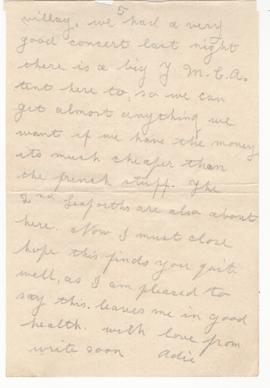 5
villay, we had a very
good concert last night
there is a big Y M.C.A.
tent here to, so we can
get almost anything we
want if we have the money
its much cheaper than
the french stuff. The
2nd Seaforths are also about
here. Now I must close
hope this finds you quit
well, as I am pleased to
say this, leaves me in good
health. with love from
write soon Adie